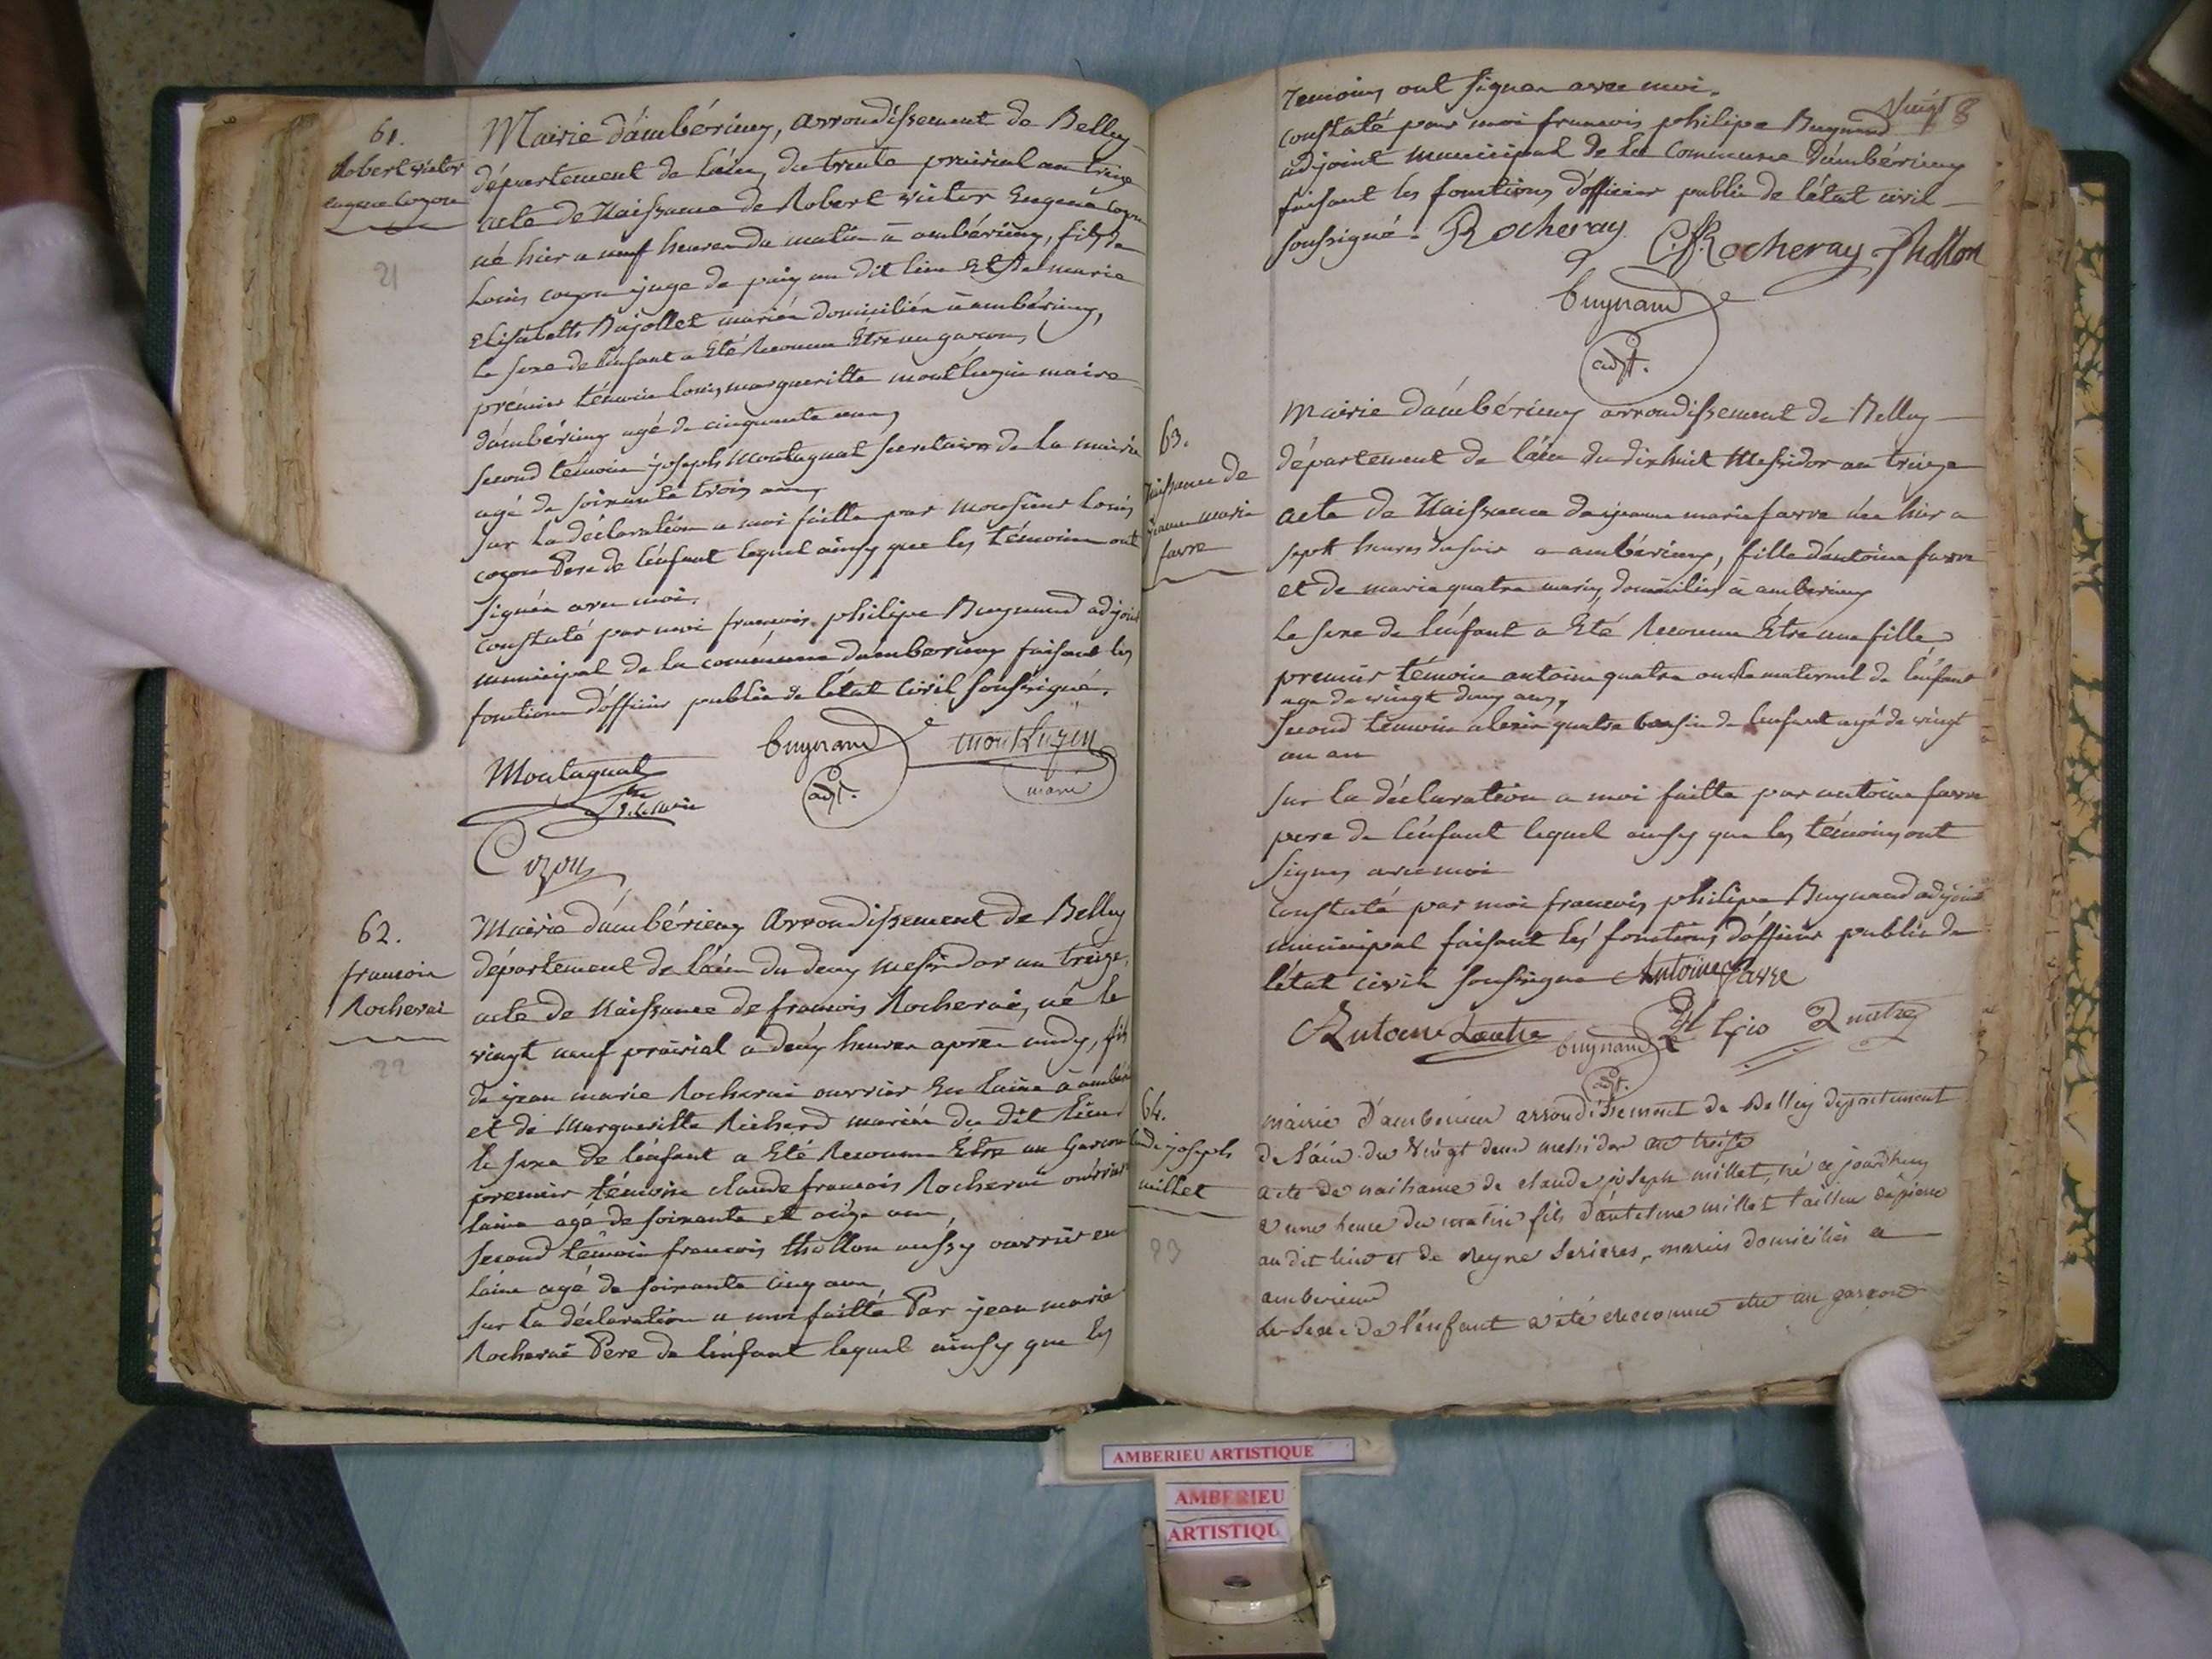 61.
Robert victor
eugene cozon
21
Mairie d'ambérieux, arrondissement de Belley
département de l'ain, du trente prairial an treize
acte de Naissance de Robert victor Eugene cozon
né hier a neuf heures du matin à ambérieux, fils de
Louis cozon juge de paix au dit lieu et de marie
Elisabeth Bajollet mariés domiciliés à ambérieux,
Le sexe de l'enfant a été reconnu Etre un garcon,
prémier témoin Louis margueritte montluzin maire
d'ambérieux agé de cinquante ans,
second témoin joseph Montagnat secretaire de la mairie
agé de soixante trois ans,
sur la déclaration a moi faitte par Monsieur Louis
cozon Pere de l'enfant lequel ainsy que les témoins ont
signés avec moi.
constaté par moi francois philipe Buynand adjoint
municipal de la commune d'amberieux faisant les
fonctions d'officier public de l'état civil soussigné.
Montagnat
buynand
adjt.
montluzin
maire
Cozon
62.
francois
Rocherai
22
Mairie d'ambérieux Arrondissement de Belley
département de l'ain du deux messidor an treize,
acte de Naissance de francois Rocherai, né le
vingt neuf prairial a deux heures après midy, fils
de jean marie Rocherai ouvrier En laine à ambéri
et de Margueritte Richerd mariés du dit lieu
le sexe de l'enfant a Eté Reconnu Etre un Garcon
premier témoin claude francois Rocherai ouvrier
laine agé de soixante et onze ans,
second témoin francois thollon aussy ouvrier en
laine agé de soixante cinq ans
sur la déclaration a moi faitte Par jean marie
Rocherai Pere de l'enfant lequel ainsy que les
temoins ont signer avec moi.
Vingt 8
constaté par moi francois philipe Buynand
adjoint municipal de la commune d'ambérieux
faisant les fonctions d'officier public de l'état civil
soussigné. Rocheray CfRocheray thollon
buynand
adjt.
63.
Naissance de
jeanne marie
farre
Mairie d'ambérieux arrondissement de Belley
département de l'ain du dixhuit Messidor an treize
acte de Naissance de jeanne marie farre née hier a
sept heures du soir a ambérieux, fille d'antoine farre
et de marie quatre mariés, domiciliés à amberieux
Le sexe de l'enfant a Eté Reconnu Être une fille,
premier témoin antoine quatre oncle maternel de l'enfant
age de vingt deux ans,
second témoin alexis quatre cousin de l'enfant agé de vingt
un an
sur la déclaration a moi faitte par antoine farre
pere de l'enfant lequel ainsy que les témoins ont
signes avec moi
constaté par moi francois philipe Buynand adjoint
municipal faisant les fonctions d'officier public de
l'état civil soussigne Antoine Farre
Antoine quatre
buynand
adjt.
Quatre
64.
claude joseph
millet
23
mairie d'amberieux arrondissement de Belley departement
de l'ain du vingt deux messidor an treise
acte de naissance de claude joseph millet, né ce jourdhuy
a une heure du matin fils d'antelme millet tailleur de pierre
au dit lieu et de Reyne Serieres, mariés domiciliés a
amberieux
Le sexe de l'enfant a été reconnu etre un garcon
AMBERIEU ARTISTIQUE
AMBERIEU
ARTISTIQU